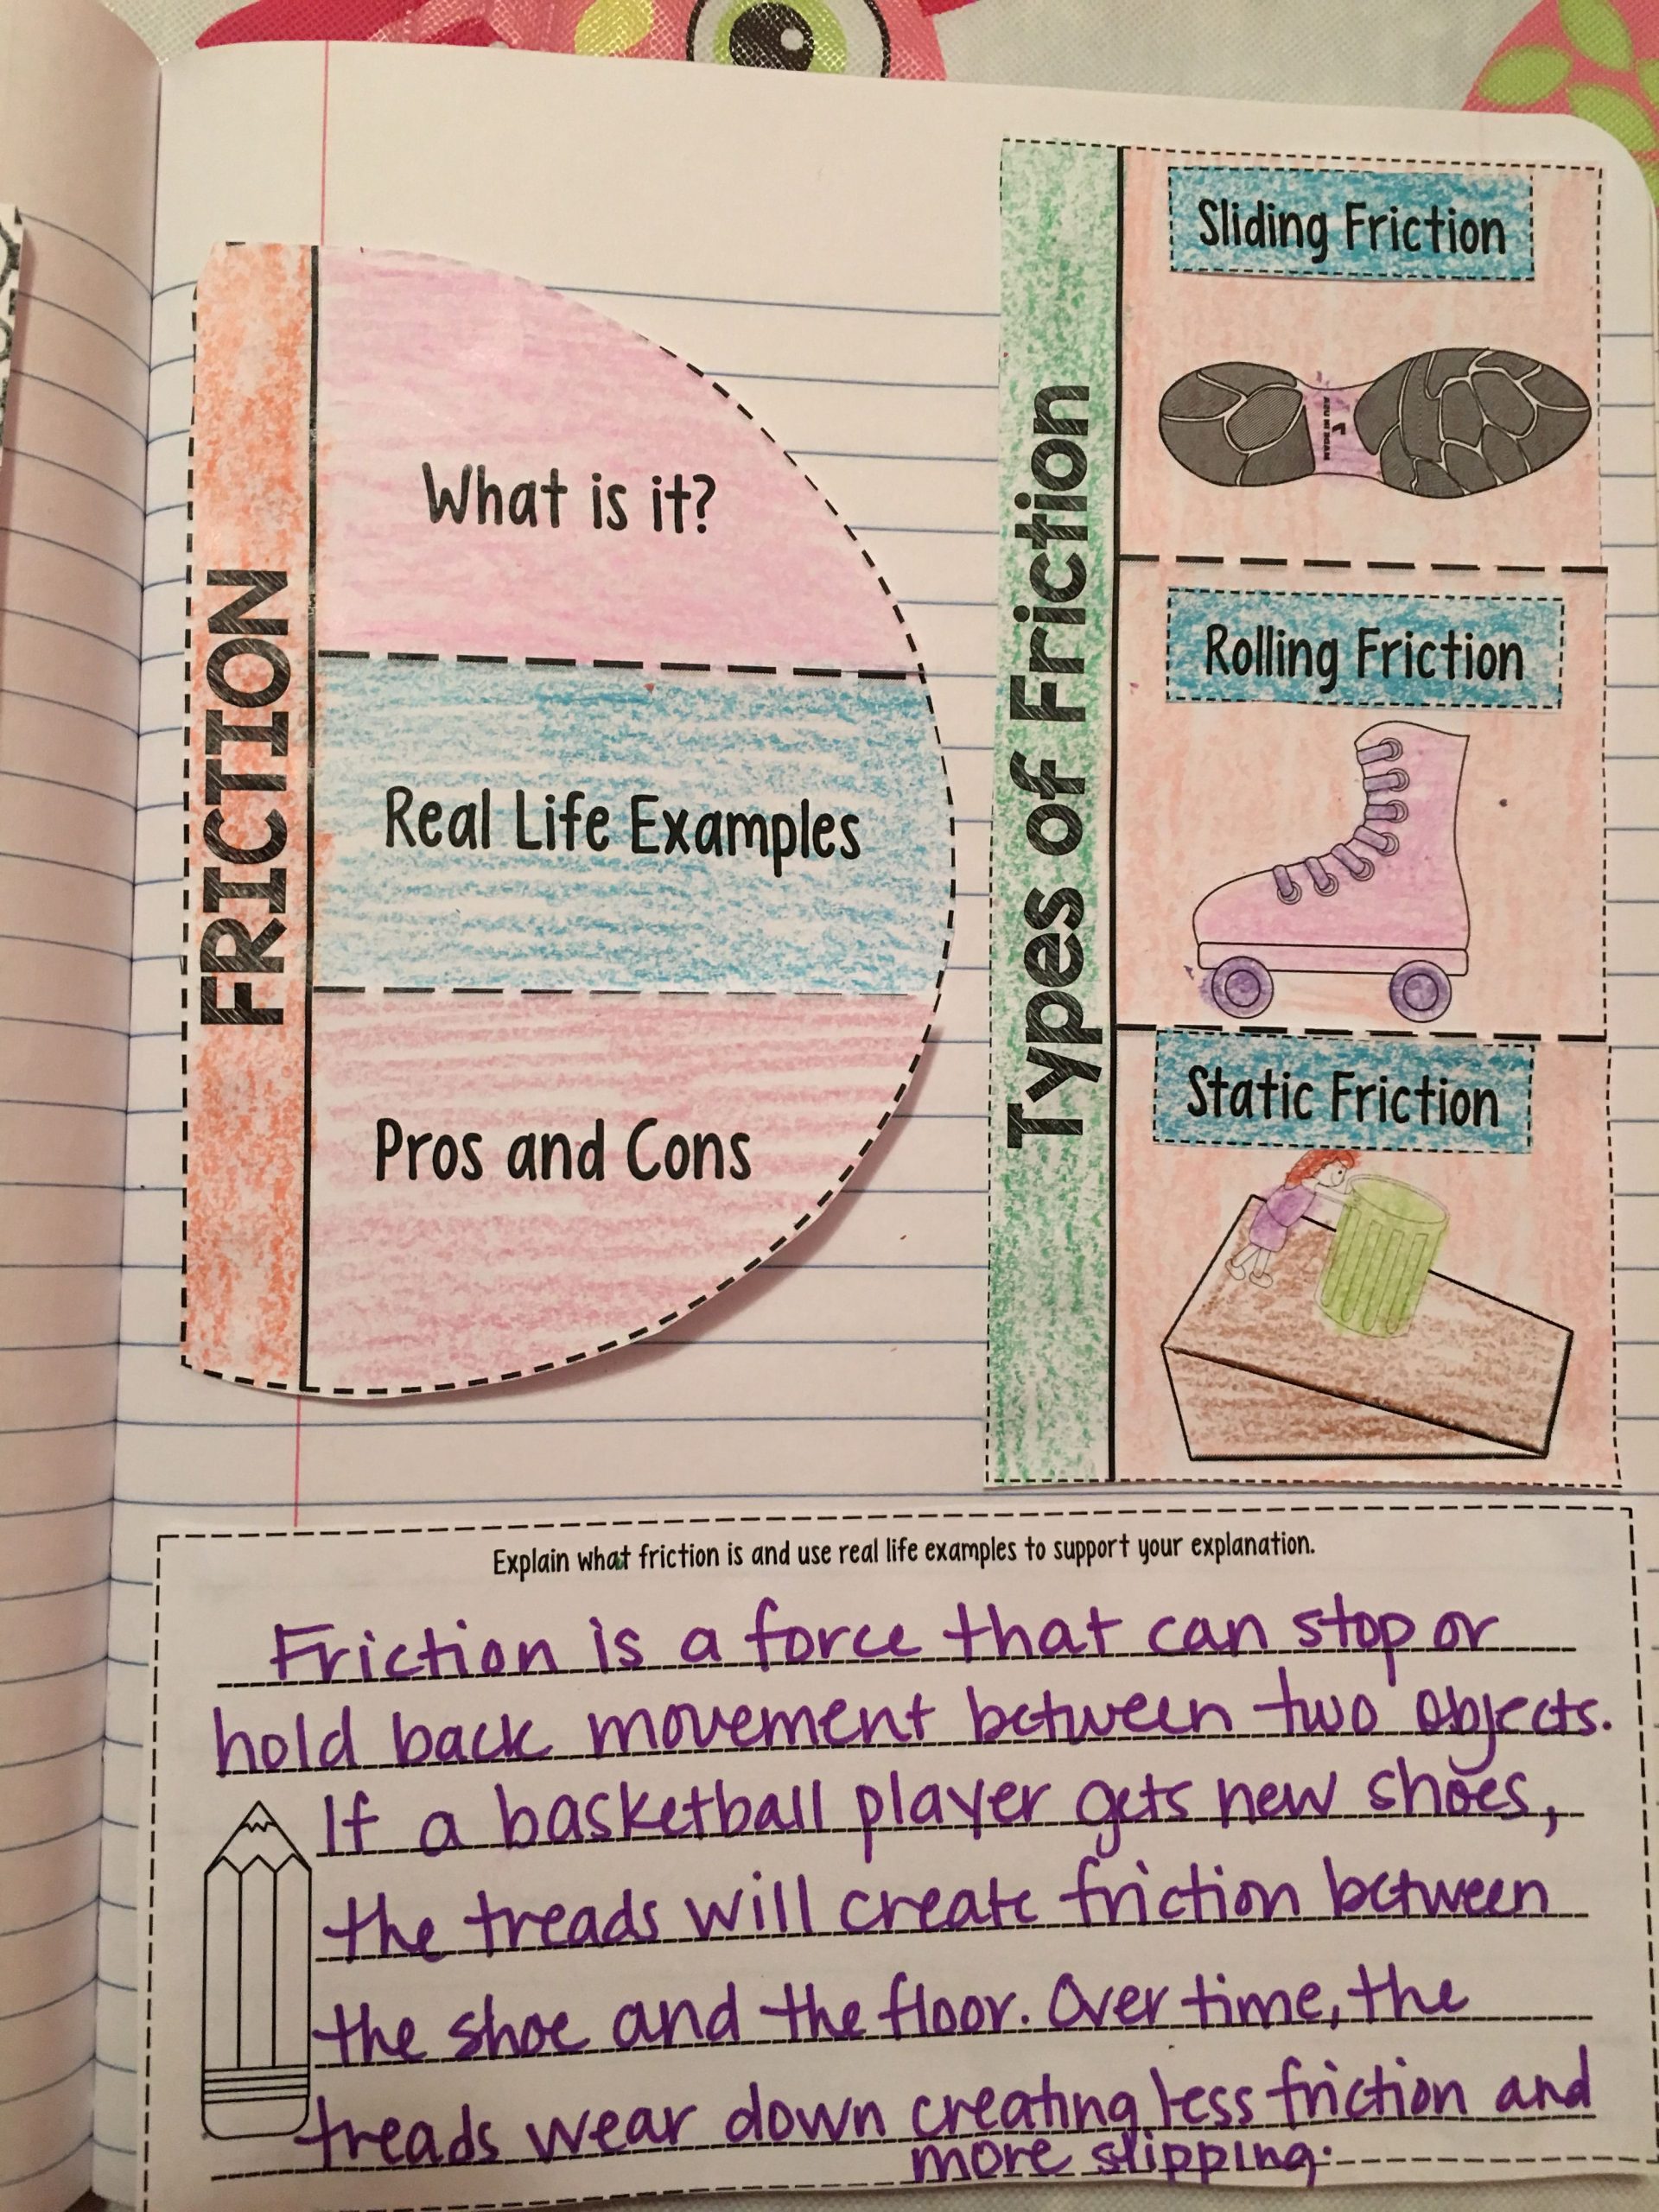 FRICTION
What is it?
Real Life Examples
Pros and Cons
Types of Friction
Sliding Friction
Rolling Friction
Static Friction
Explain what friction is and use real life examples to support your explanation.
Friction is a force that can stop or
hold back movement between two objects.
If a basketball player gets new shoes,
the treads will create friction between
the shoe and the floor. Over time, the
treads wear down creating less friction and
more slipping.